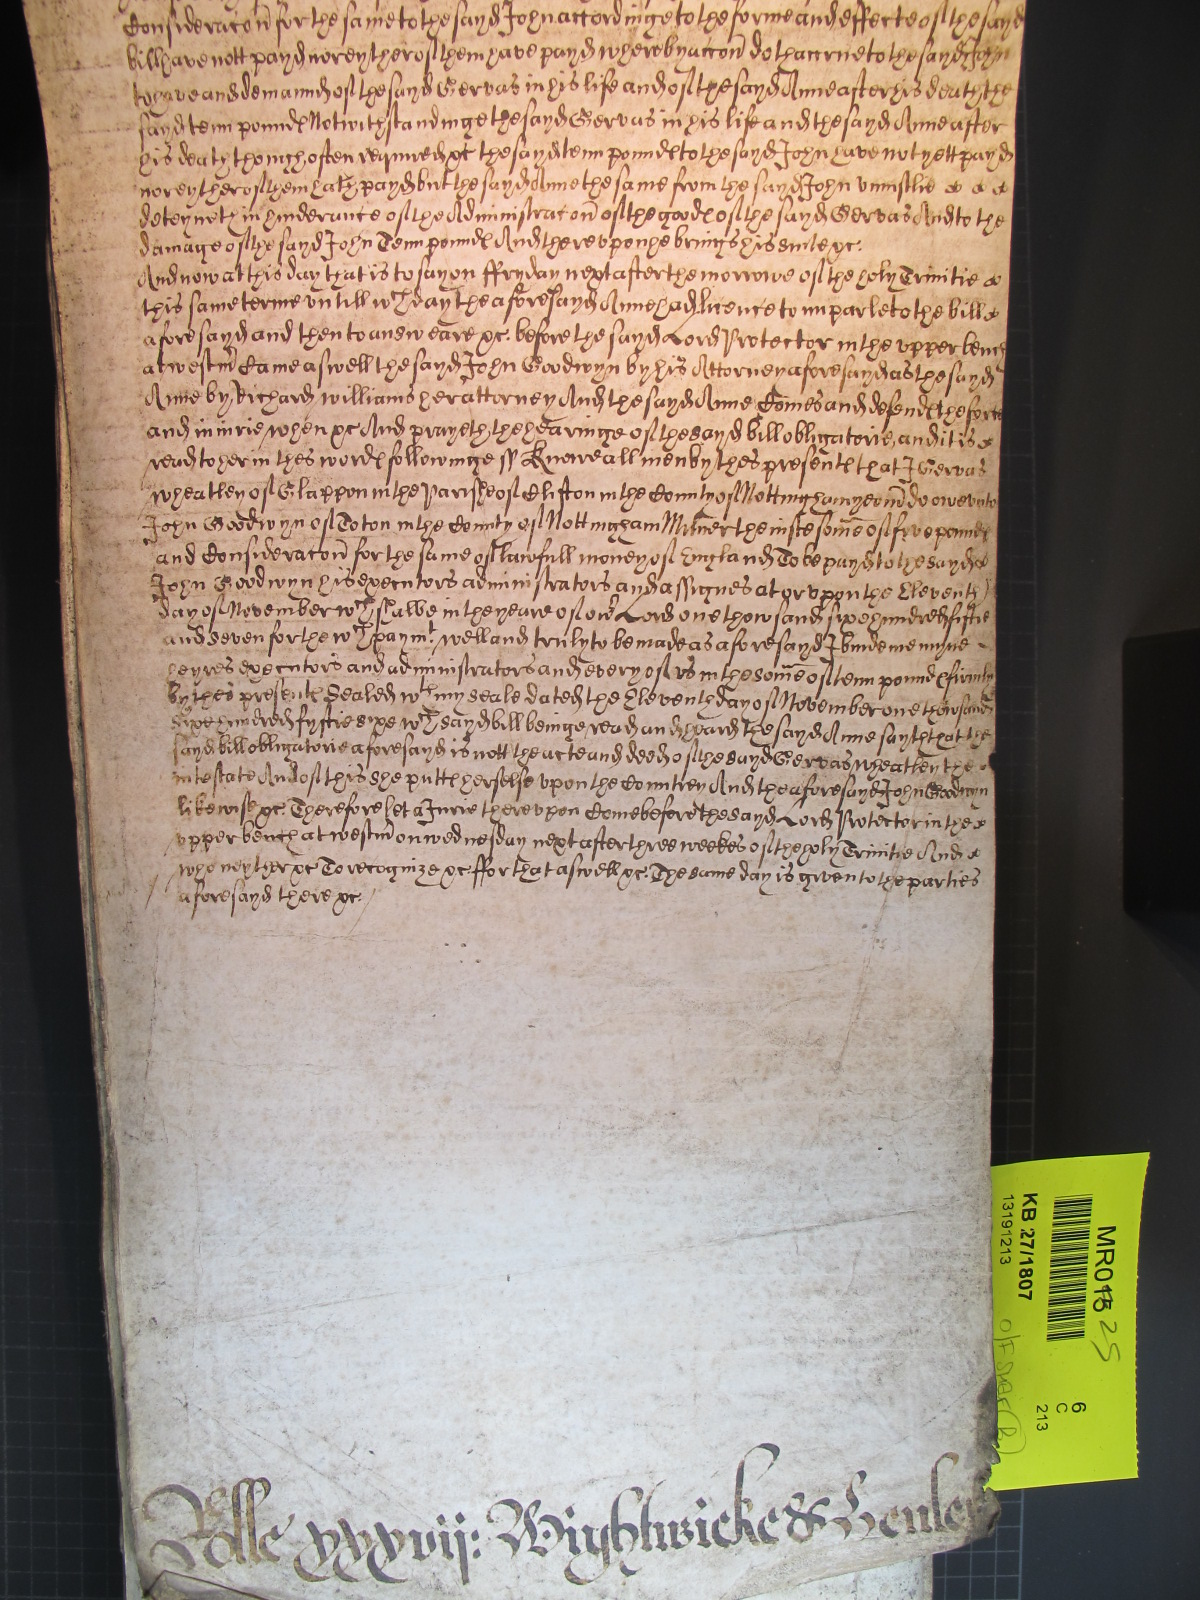 Consideracon for the same to the sayd John accordinge to the forme and effecte of the sayd
bill have nott payd nor eyther of them have payd whereby accon doth accrue to the sayd John
to have and demaund of the sayd Gervas in his life and of the sayd Anne after his death the
sayd tenn pounds Notwithstandinge the sayd Gervas in his life and the sayd Anne after
his death though often required &c the sayd tenn pounds to the sayd John have not yett payd
nor eyther of them hath payd but the sayd Anne the same from the sayd John uniustlie
deteyneth in hinderance of the Administracon of the goods of the sayd Gervas And to the
damage of the sayd John Tenn pounds And thereupon he brings his suite &c.
And now at this day that is to say on ffryday next after the morrowe of the holy Trinitie
this same terme untill wch day the aforesayd Anne had licence to imparle to the bill
aforesayd and then to answeare &c. before the sayd Lord Protector in the upper bench
at westm Came aswell the sayd John Goodwyn by his Attorney aforesayd as the sayd
Anne by Richard Williams her attorney And the sayd Anne Comes and defends the force
and iniurie when &c And prayeth the hearinge of the sayd bill obligatorie, and it is
read to her in thes words followinge ss Knowe all men by thes presents that I Gervas
Wheatley of Glappon in the Parishe of Clifton in the County of Nottingham yeom do owe unto
John Goodwyn of Toton in the County of Nottingham Milner the iuste some of five pounds
and Consideracon for the same of lawfull money of England To be payd to the sayd
John Goodwyn his executors administrators and assignes at or upon the Eleventh
day of November wch shalbe in the yeare of our Lord one thowsand sixe hundred fiftie
and seven for the wch paymt well and truly to be made as aforesayd I binde me myne
heyres executors and administrators and every of us in the some of tenn pounds firmly
by thes presents Sealed wth my seale dated the Eleventh day of November one thowsand
sixe hundred fyftie sixe wch sayd bill beinge read and heard the sayd Anne sayth that the
sayd bill obligatorie aforesayd is nott the acte and deed of the sayd Gervas Wheatley the
intestate And of this she putts herselfe upon the Countrey And the aforesayd John Goodwyn
likewise &c. Therefore let a Jurie thereupon Come before the sayd Lord Protector in the
upper bench at westm on wednesday next after three weekes of the holy Trinitie And
who neyther &c To recognize &c. ffor that aswell &c. The same day is given to the parties
aforesayd there &c.
Rolle xxxvij: Wightwicke &
MR01
25
KB 27/1807
13191213
6
C
213